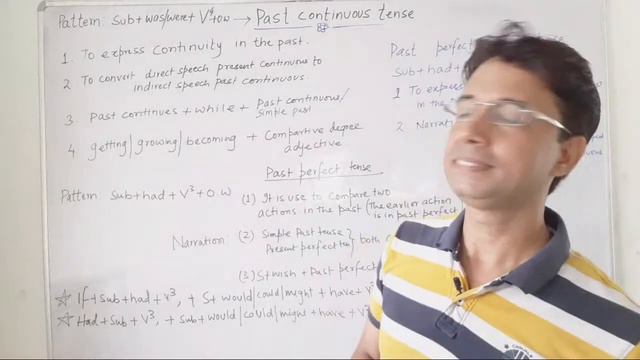 Pattern: Sub + was/were + V⁴ + ow → Past continuous tense
1. To express continuity in the past.
2 To convert direct speech present continuous to
indirect speech past continuous.
3 Past continues + while + Past continuous/
simple past
4 getting/growing/becoming + Compartive degree
adjective
Past perfect tense
Pattern Sub + had + V³ + O W
(1) It is use to compare two
actions in the past (The earlier action
is in past perfect
Narration: (2) Simple Past tense
Present perfect ten} both
(3) S + wish + Past perfect
☆ If + Sub + had + V³, + S + would/could/might + have + V³
☆ Had + Sub + V³, + Sub + would/could/might + have + V³
Past perfe
Sub + had +
1 To express
in the
2 Narrati